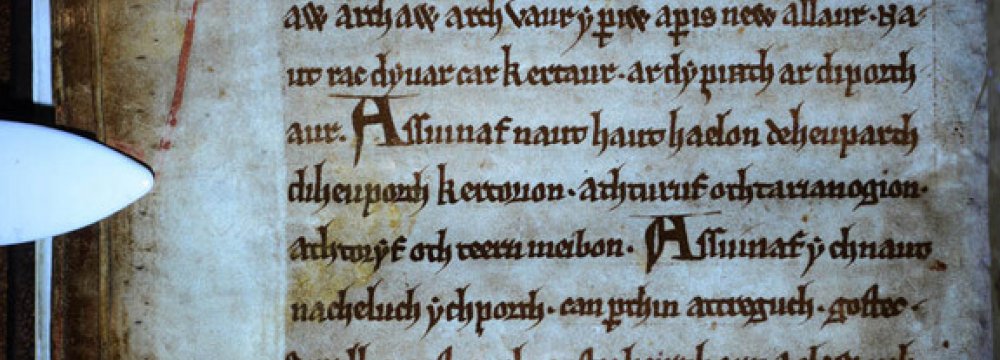 arch aw arch vaur y ꝑiw a ꝑis new allaur. Na
ut rac dy uar car kertaur. ar dy pirth ar di porth
aur. Assuinaf naut haut haelon deheuparth
diheuporth kertorion. ath turuf oth tarianogion.
ath toryf oth teern meibon. Assuinaf y ch naut
nacheluch ych porth. can ꝑthin attreguch. gostec.